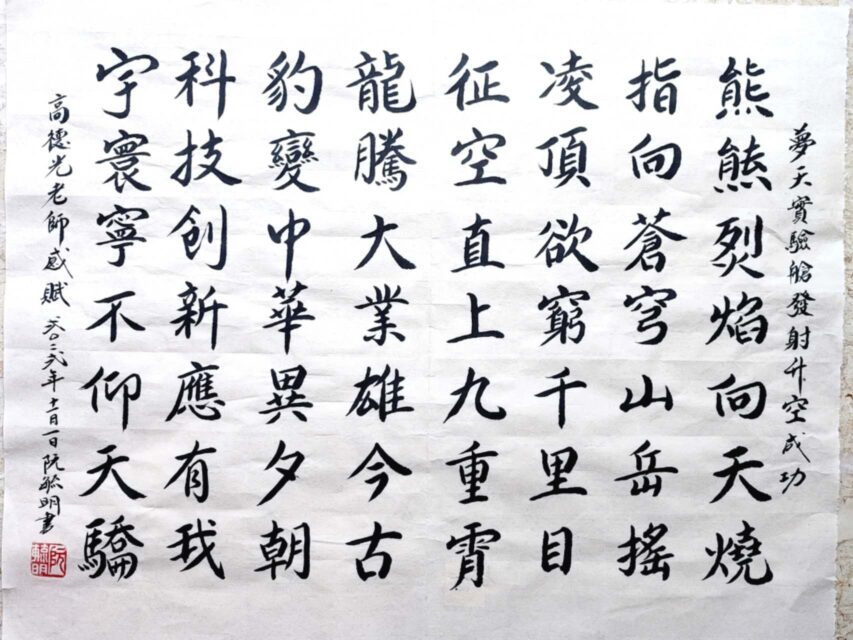 夢天實驗艙發射升空成功
熊熊烈焰向天燒
指向蒼穹山岳搖
凌頂欲窮千里目
征空直上九重霄
龍騰大業雄今古
豹變中華異夕朝
科技創新應有我
宇寰寧不仰天驕
高德光老師感賦 贰〇二弍年十一月一日阮毓明書